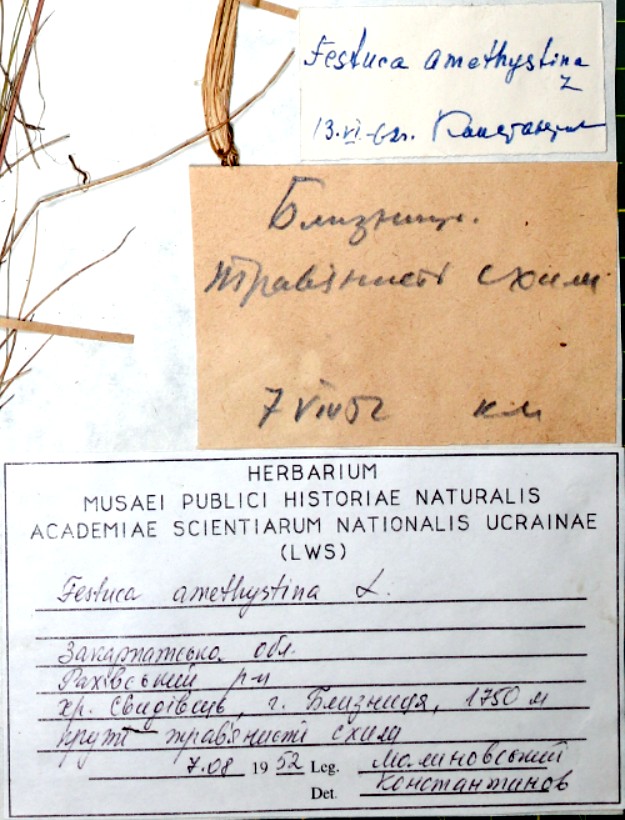 Festuca amethystina
L
13.VI-62г. Константинов
Близниця.
трав'янисті схили
7 VIII 52 км
HERBARIUM
MUSAEI PUBLICI HISTORIAE NATURALIS
ACADEMIAE SCIENTIARUM NATIONALIS UCRAINAE
(LWS)
Festuca amethystina L.
Закарпатська обл.
Рахівський р-н
хр. Свидівець, г. Близниця, 1750 м
круті трав'янисті схили
7.08 1952 Leg. Малиновський
Det. Константинов